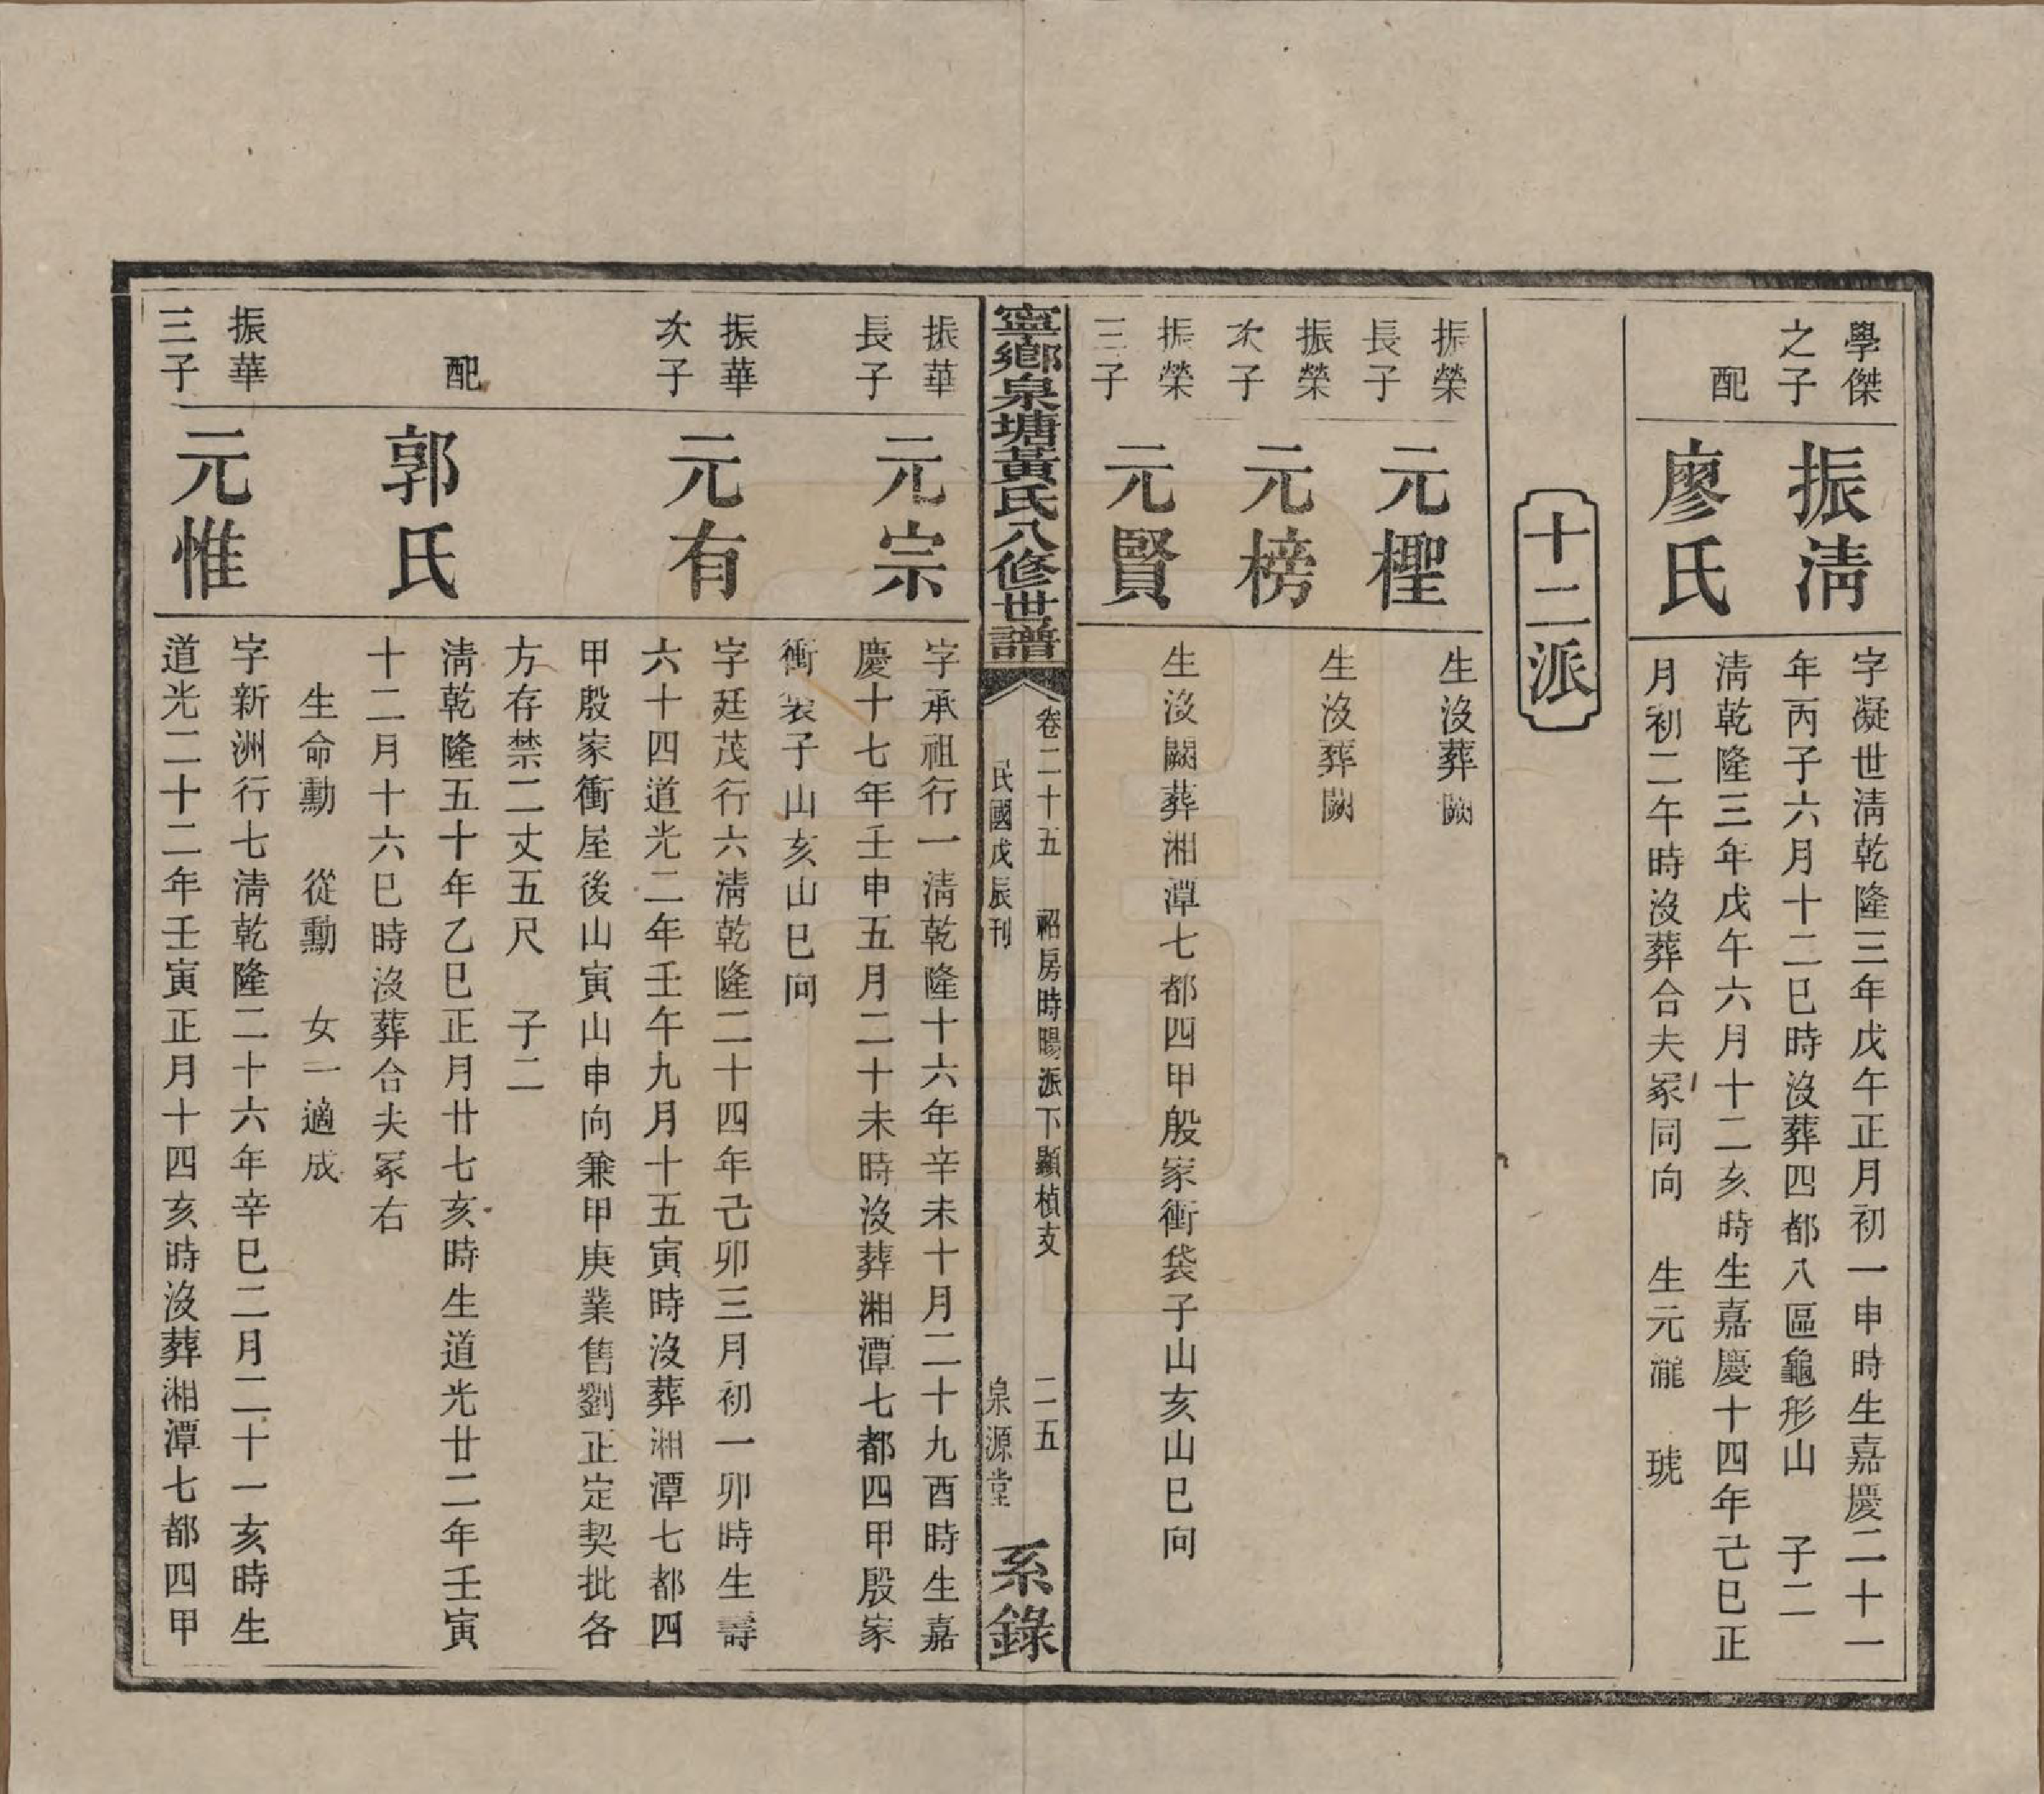 學傑
之子
振淸
字凝世淸乾隆三年戊午正月初一申時生嘉慶二十一
年丙子六月十二巳時沒葬四都八區龜形山　子二
配
廖氏
淸乾隆三年戊午六月十二亥時生嘉慶十四年己巳正
月初二午時沒葬合夫冢同向　生元瀧　琥
十二派
振榮
長子
元檉
生沒葬闕
振榮
次子
元榜
生沒葬闕
振榮
三子
元賢
生沒闕葬湘潭七都四甲殷家衝袋子山亥山巳向
寧鄕泉塘黃氏八修世譜
卷二十五　祒房時暘派下顯楨支　二五
民國戊辰刊　泉源堂
系錄
振華
長子
元宗
字承祖行一淸乾隆十六年辛未十月二十九酉時生嘉
慶十七年壬申五月二十未時沒葬湘潭七都四甲殷家
衝袋子山亥山巳向
振華
次子
元有
字廷茂行六淸乾隆二十四年己卯三月初一卯時生壽
六十四道光二年壬午九月十五寅時沒葬湘潭七都四
甲殷家衝屋後山寅山申向兼甲庚業售劉正定契批各
方存禁二丈五尺　子二
配
郭氏
淸乾隆五十年乙巳正月廿七亥時生道光廿二年壬寅
十二月十六巳時沒葬合夫冢右
生命勳　從勳　女一適成
振華
三子
元惟
字新洲行七淸乾隆二十六年辛巳二月二十一亥時生
道光二十二年壬寅正月十四亥時沒葬湘潭七都四甲